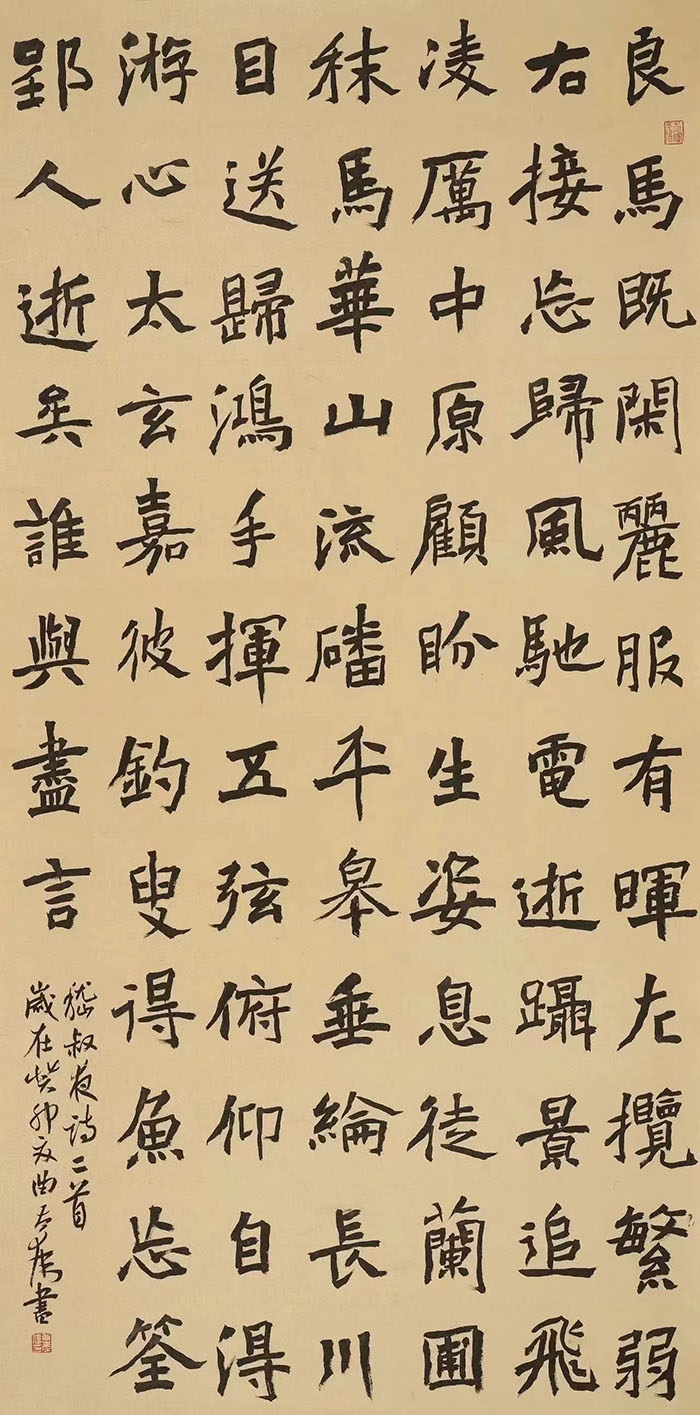 良馬既閑麗服有暉左攬繁弱
右接忘歸風馳電逝躡景追飛
凌厲中原顧盼生姿息徒蘭圃
秣馬華山流磻平皋垂綸長川
目送歸鴻手揮五弦俯仰自得
游心太玄嘉彼釣叟得魚忘筌
郢人逝矣誰與盡言
嵇叔夜诗二首
歲在癸卯夏曲書